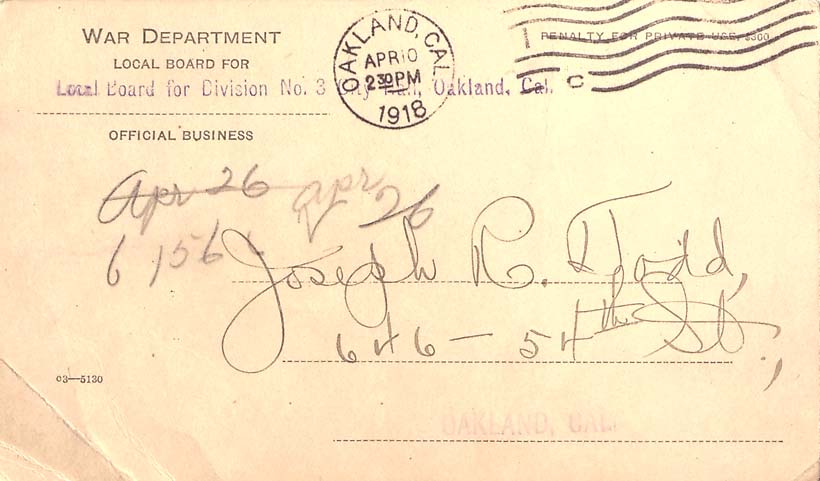 WAR DEPARTMENT
LOCAL BOARD FOR
Local Board for Division No. 3 City Hall, Oakland, Cal.
OFFICIAL BUSINESS
OAKLAND, CAL.
APR 10
2 30 PM
1918
PENALTY FOR PRIVATE USE, $300
C
Apr 26 apr 26
6 156
Joseph R. Todd,
646 — 54th St.,
OAKLAND, CAL.
03—5130